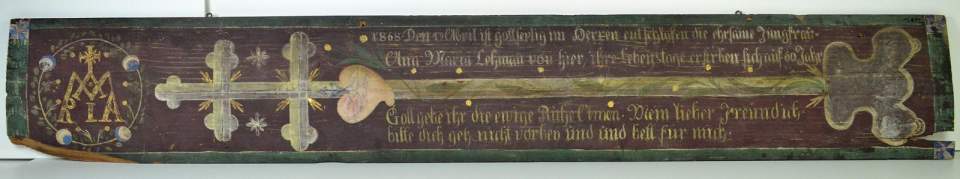 MARIA
1868 Den 13 April ist gottselig im Herren entschlafen die ehrsame Jungfrau
Ana Maria Lehman von hier, ihre Lebenstage erstreken sich auf 60 Jahr
Gott gebe ihr die ewige Ruhe Amen. Mein lieber Freund ich
bitte dich geh nicht vorbey und und bett für mich.